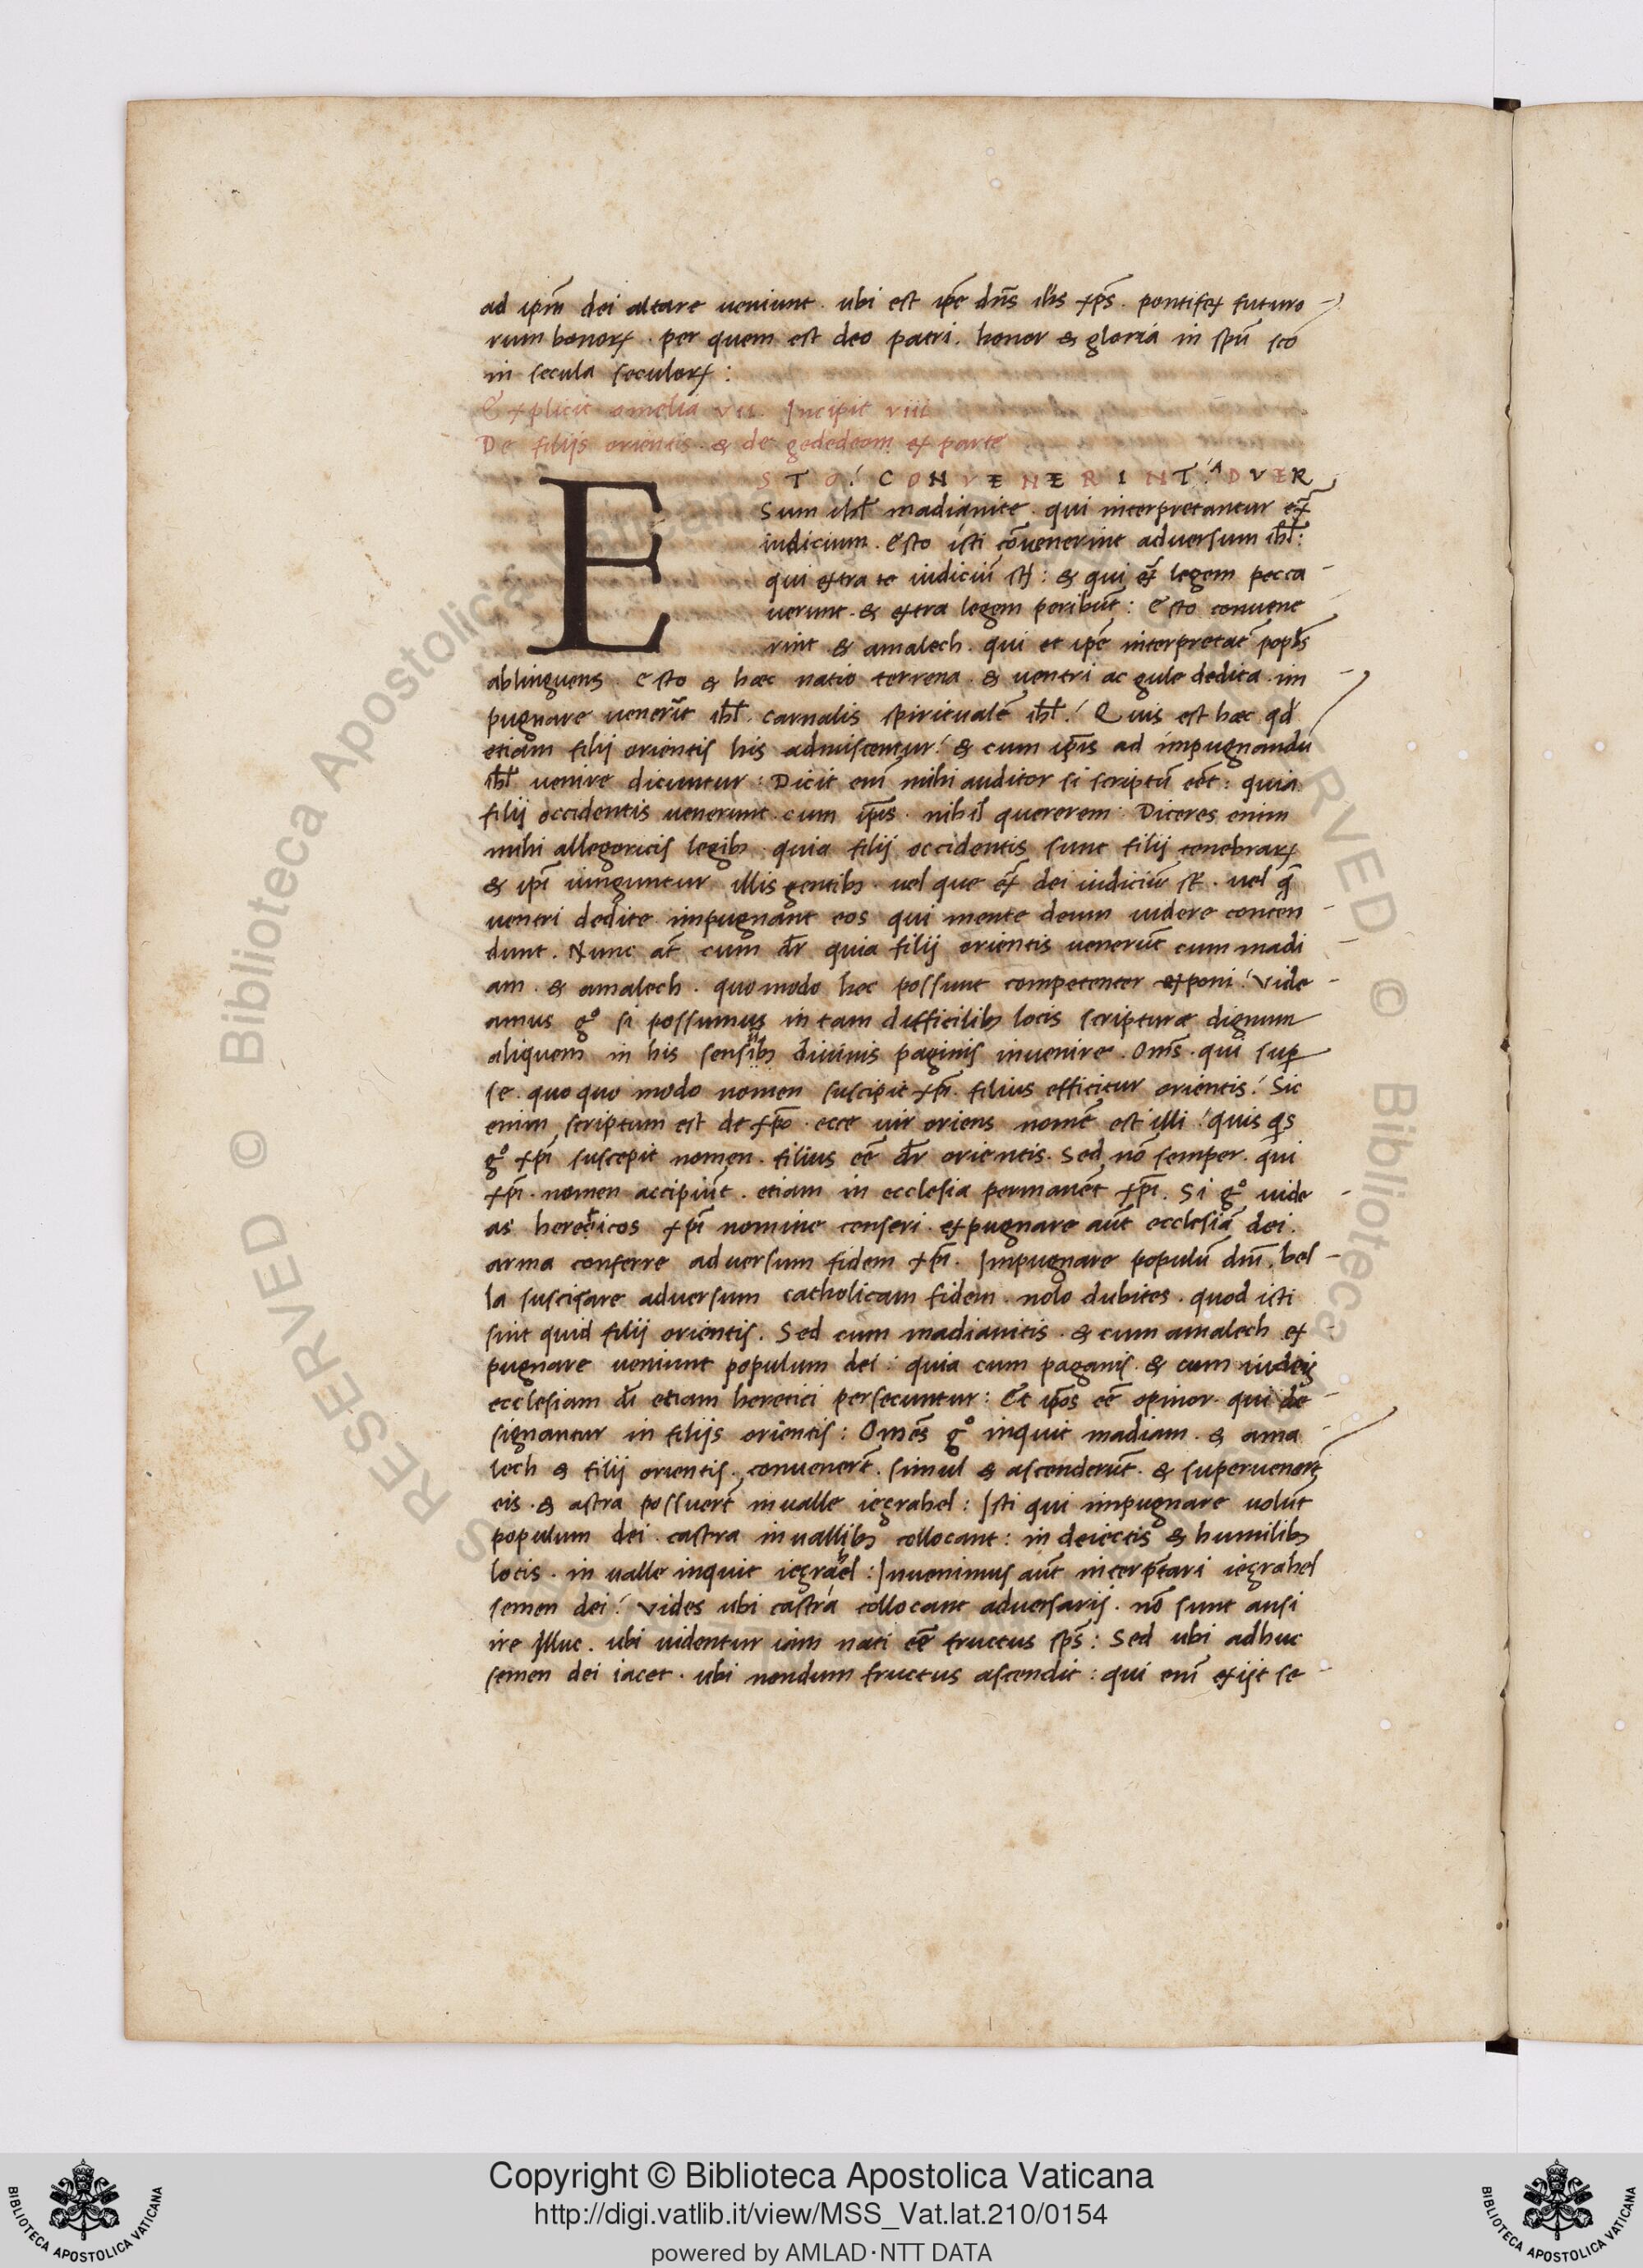 ad ip̄m dei altare ueniunt . ubi est ip̄e dn̄s ih̄s xp̄s . pontifex futuro
rum bonoꝝ . per quem est deo patri . honor & gloria in sp̄u sc̄o
in secula seculoꝝ :
Explicit omelia vii . Incipit viii
De filijs orientis . & de gededeom ex parte
ESTO! CONVENERINT! ADVER
sum ih̄l madianite . qui interpretantur ex̄
iudicium . Esto isti cōuenerint aduersum ih̄l :
qui extra te iudiciū st̄ : & qui ex̄ legem pecca
uerunt . & extra legem peribūt : Esto conuene
rint & amalech . qui et ip̄e interpretat̄ popl̄s
ablinguens . esto & hæc natio terrena . & uentri ac gule dedita . im
pugnare uenerūt ih̄l . carnalis spiritualē ih̄l ! Quis est hæc qd̄
etiam filij orientis his admiscentur ! & cum ip̄is ad impugnandū
ih̄l uenire dicuntur : Dicit enī mihi auditor si scriptū eēt : quia
filij occidentis uenerunt . cum ip̄is . nihil quererem . Diceres enim
mihi allegoricis legib; quia filij occidentis sunt filij tenebraꝝ
& ip̄i iunguntur illis gentib; . uel que ex̄ dei iudiciū st̄ . uel q̄
uentri dedite impugnant eos qui mente deum uidere conten
dunt . Nunc at̄ cum dr̄ quia filij orientis uenerūt cum madi
am . & amalech . quomodo hec possunt competenter exponi ! Vide
amus gº si possumus in tam difficilib; locis scripturæ dignum
aliquem in his sensib; diuinis paginis inuenire . Om̄s . qui suꝑ
se . quoquo modo nomen suscipit xp̄i . filius efficitur orientis ! Sic
enim scriptum est de xp̄o . ecce uir oriens nomē est illi ! quis qs
gº xp̄i suscepit nomen . filius eē dr̄ orientis . Sed nō semper . qui
xp̄i . nomen accipiūt . etiam in ecclesia permanēt xp̄i . Si gº uide
as hereticos xp̄i nomine censeri . expugnare aūt ecclesiā dei .
arma conferre aduersum fidem xp̄i . Impugnare populū dn̄i . bel
la suscitare aduersum catholicam fidem . nolo dubites . quod isti
sint quid filij orientis . Sed cum madianitis . & cum amalech ex
pugnare ueniunt populum dei : quia cum paganis . & cum iudeis
ecclesiam dī etiam heretici persecuntur : Et ip̄os eē opinor . qui de
signantur in filijs orientis : Omēs gº inquit madiam . & ama
lech & filij orientis . conuenert̄ . simul & ascenderūt . & superuenert̄
eis . & astra possuert̄ in ualle iegrahel : Isti qui impugnare uolūt
populum dei . castra in uallib; collocant : in deiectis & humilib;
locis . in ualle inquit iegrahel : Inuenimus aūt interp̄tari iegrahel
semen dei ! Vides ubi castra collocant aduersarij . nō sunt ausi
ire Illuc . ubi uidentur iam nati eē fructus sp̄s : Sed ubi adhuc
semen dei iacet . ubi nondum fructus ascendit : qui enī exijt se
Copyright © Biblioteca Apostolica Vaticana
http://digi.vatlib.it/view/MSS_Vat.lat.210/0154
powered by AMLAD·NTT DATA